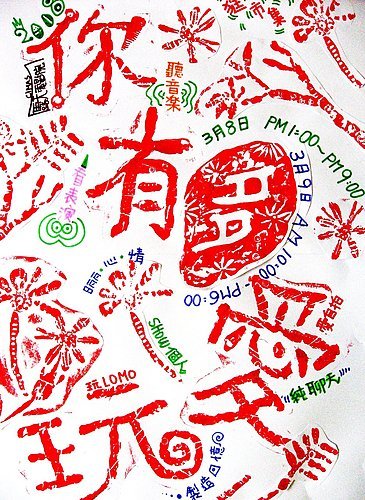 你
有
多
愛
玩
市集
聽音樂
看表演
3月8日 PM1:00~PM9:00
3月9日 AM10:00~PM6:00
晒·心·情
SHOW個人
玩LOMO
"純聊天"
製造回憶